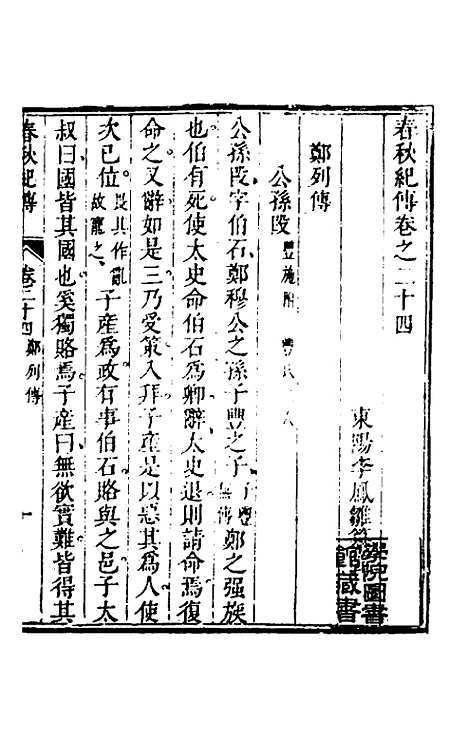 春秋紀傳卷之二十四
東陽李鳳雛
學院圖書
館藏書
鄭列傳
公孫段 豐施附 豐
公孫段字伯石鄭穆公之孫子豐之子 子豐無傳 鄭之强族
也伯有死使太史命伯石為卿辭太史退則請命焉復
命之又辭如是三乃受策入拜子產是以惡其為人使
次已位 畏其作亂故寵之 子產為政有事伯石賂與之邑子太
叔曰國皆其國也奚獨賂焉子產曰無欲實難皆得其
春秋紀傳 卷二十四 鄭列傳 一